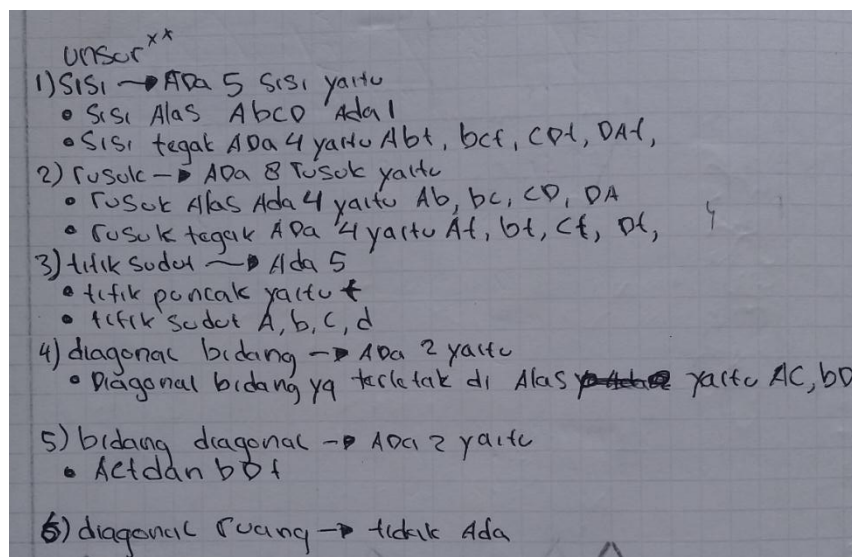 Unsur**
1) Sisi → ADa 5 sisi yaitu
• Sisi Alas AbcD Ada 1
• Sisi tegak ADa 4 yaitu Abt, bct, CDt, DAt,
2) rusuk → ADa 8 rusuk yaitu
• rusuk Alas Ada 4 yaitu Ab, bc, CD, DA
• rusuk tegak ADa 4 yaitu At, bt, Ct, Dt,
3) titik sudut → Ada 5
• titik puncak yaitu t
• titik sudut A, b, c, d
4) diagonal bidang → ADa 2 yaitu
• Diagonal bidang yg terletak di Alas yaitu AC, bD
5) bidang diagonal → ADa 2 yaitu
• Act dan bDt
6) diagonal ruang → tidak Ada